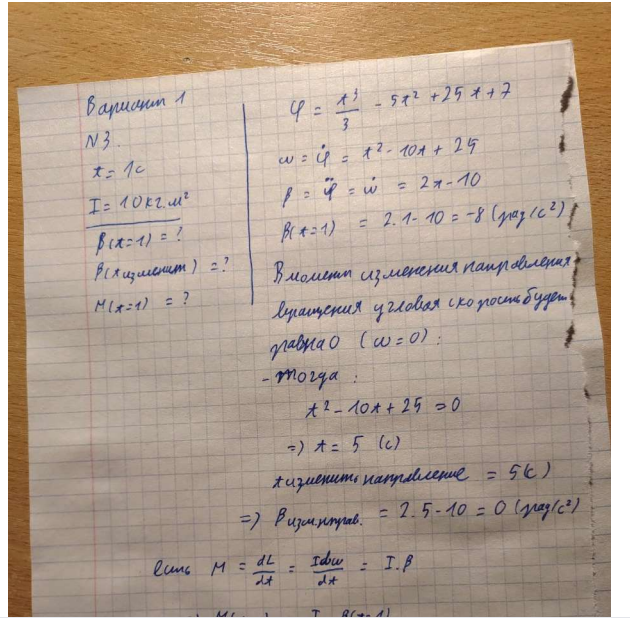 Вариант 1
N3.
t = 1c
I = 10 кг.м²
β(t=1) = ?
β(t изменит) = ?
M(t=1) = ?
φ = t³/3 - 5t² + 25t + 7
ω = φ̇ = t² - 10t + 25
β = φ̈ = ω̇ = 2t - 10
β(t=1) = 2.1 - 10 = -8 (рад/с²)
В момент изменения направления
вращения угловая скорость будет
равна 0 (ω = 0) :
- Тогда :
t² - 10t + 25 = 0
=> t = 5 (c)
t изменить направление = 5(c)
=> β изм.нправ. = 2.5 - 10 = 0 (рад/с²)
Есть M = dL/dt = Idω/dt = I.β
I β(t=1)